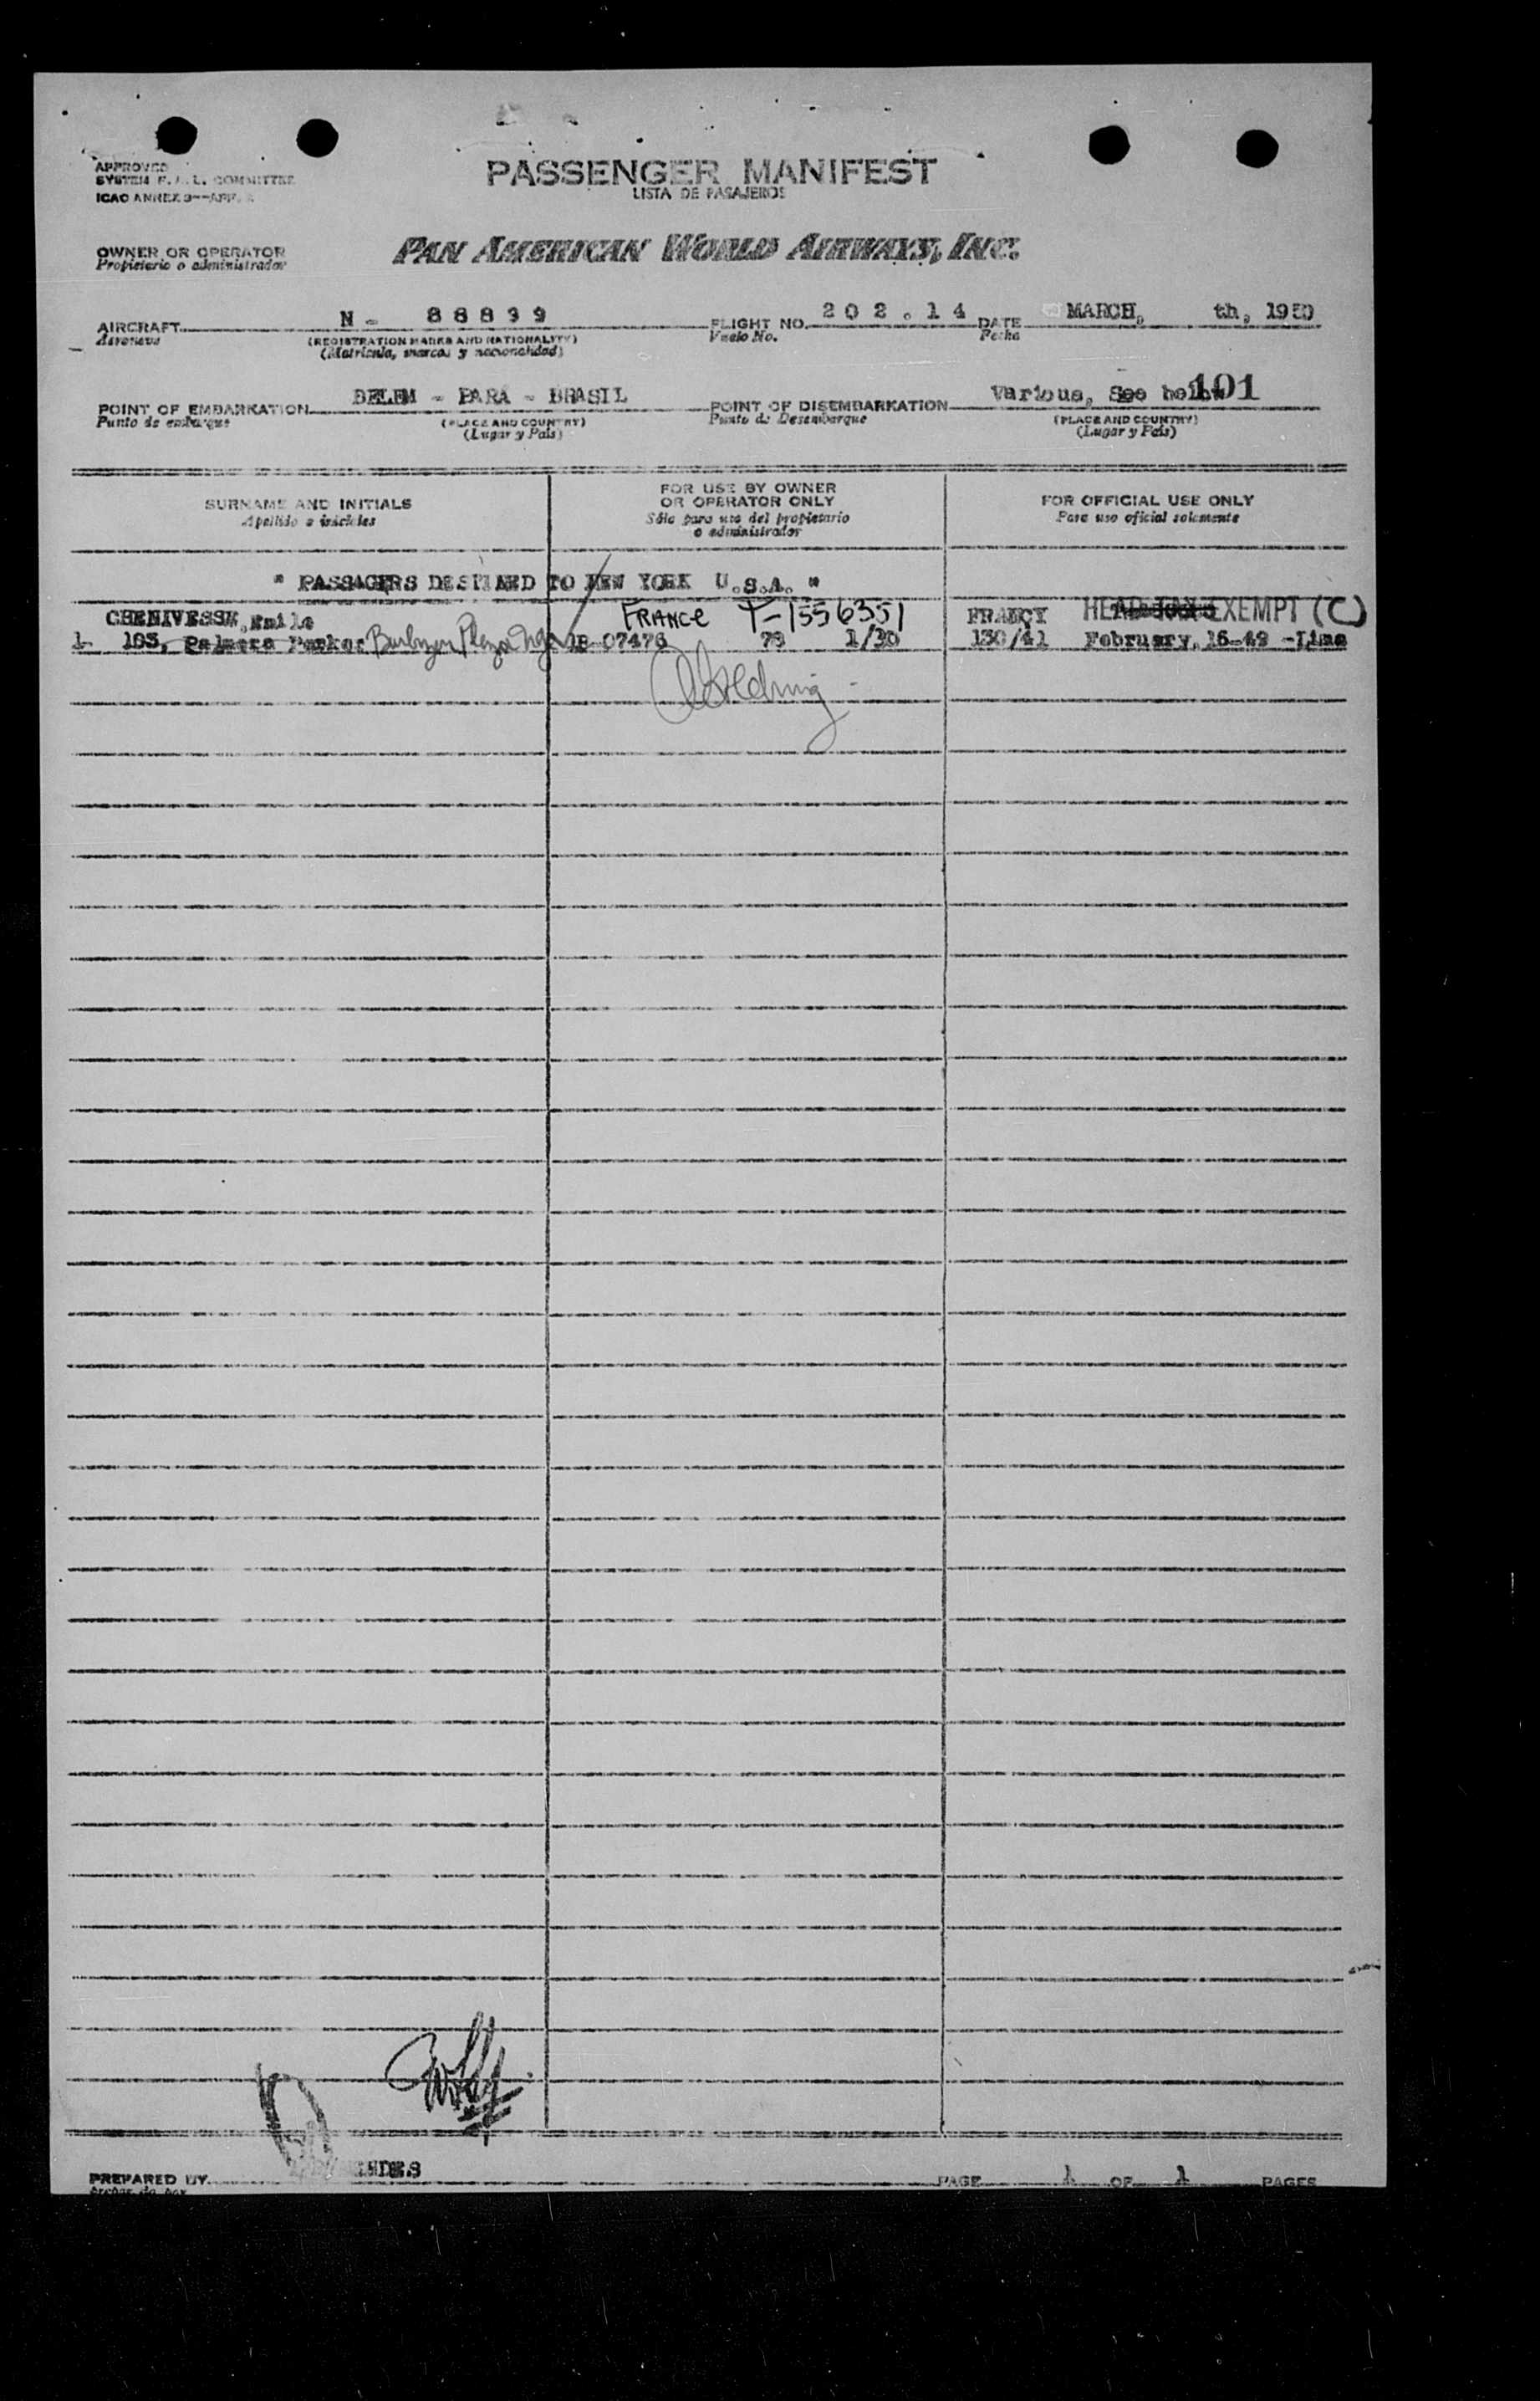 APPROVED
SYSTEM F.A.L. COMMITTEE
ICAO ANNEX 9--APP.
PASSENGER MANIFEST
LISTA DE PASAJEROS
OWNER OR OPERATOR
Propietario o administrador
PAN AMERICAN WORLD AIRWAYS, INC.
AIRCRAFT N - 88899 FLIGHT NO. 202.14 DATE MARCH, th, 1950
Aeronave (REGISTRATION MARKS AND NATIONALITY) Vuelo No. Fecha
(Matrícula, marcas y nacionalidad)
POINT OF EMBARKATION BELEM - PARÁ - BRASIL POINT OF DISEMBARKATION Various, See below 101
Punto de embarque (PLACE AND COUNTRY) Punto de Desembarque (PLACE AND COUNTRY)
(Lugar y País) (Lugar y País)
SURNAME AND INITIALS FOR USE BY OWNER OR OPERATOR ONLY FOR OFFICIAL USE ONLY
Apellido e iniciales Sólo para uso del propietario o administrador Para uso oficial solamente
" PASSAGERS DESTINED TO NEW YORK U.S.A. "
CHENIVESSE, Emile FRANCE T-1556351 FRANCY HEAD TAX EXEMPT (C)
1- 103, Palmers Barbizon Plaza 1B 07476 78 1/30 130/41 February, 16-49 -Lima
PREPARED BY PAGE 1 OF 1 PAGES